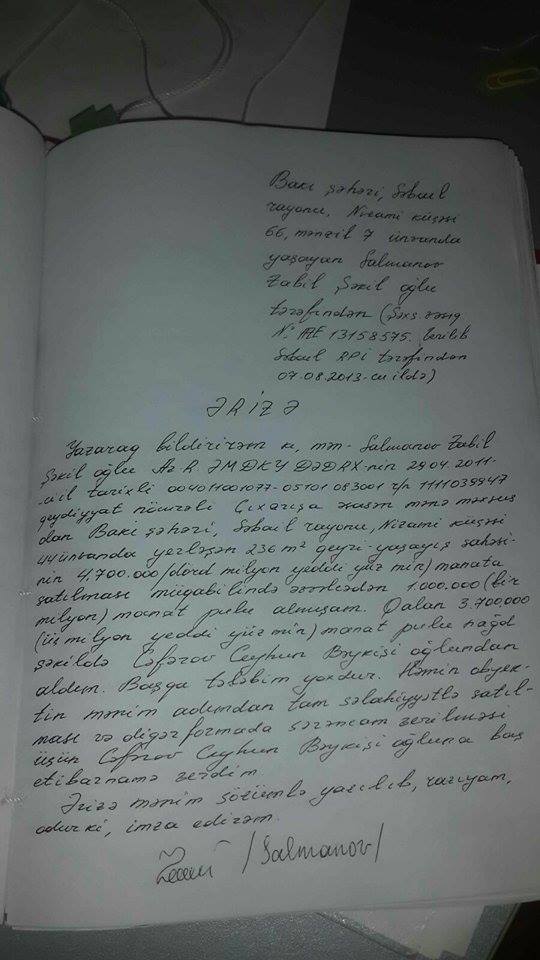 Bakı şəhəri, Səbail
rayonu, Nizami küçəsi
66, mənzil 7 ünvanda
yaşayan Salmanov
Zabil Şəkil oğlu
tərəfindən (Şəxs. vəsiq
№ AZE 13158575. verilib
Səbail RPİ tərəfindən
07.08.2013-cu ildə)
ƏRİZƏ
Yazaraq bildirirəm ki, mən - Salmanov Zabil
Şəkil oğlu Az R ƏMDKY DƏDRX-nin 29.04.2011-
-ci il tarixli 004011001077-05101 083001 r/n 1111039947
qeydiyyat nömrəli Çıxarışa əsasən mənə məxsus
olan Bakı şəhəri, Səbail rayonu, Nizami küçəsi
44 ünvanda yerləşən 236 m² qeyri-yaşayış sahəsi-
nin 4.700.000 /dörd milyon yeddi yüz min/ manata
satılması müqabilində əvvəlcədən 1.000.000 (bir
milyon) manat pulu almışam. Qalan 3.700,000
(üç milyon yeddi yüz min) manat pulu nağd
şəkildə Cəfərov Ceyhun Bəykişi oğlundan
aldım. Başqa tələbim yoxdur. Həmin obyek-
tin mənim adımdan tam səlahiyyətlə satıl-
ması və digər formada sərəncam verilməsi
üçün Cəfərov Ceyhun Bəykişi oğluna baş
etibarnamə verdim
Ərizə mənim sözümlə yazılıb, razıyam,
odur ki, imza edirəm.
/Salmanov/